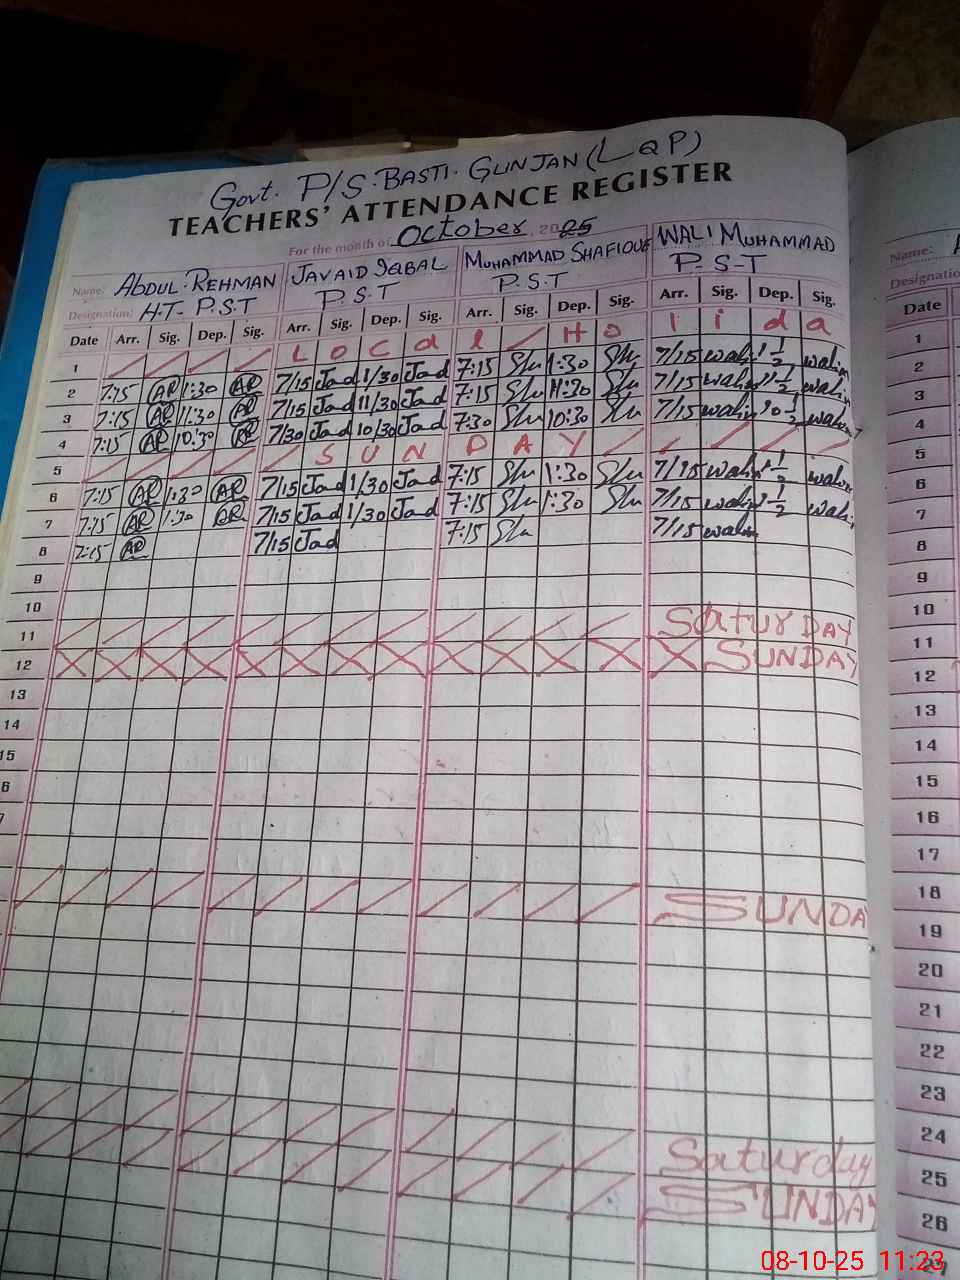 Govt. P/S. BASTI. GUNJAN (L Q P)
TEACHERS' ATTENDANCE REGISTER
For the month of October 2025
Name: ABDUL. REHMAN JAVAID IQBAL MUHAMMAD SHAFIQUE WALI MUHAMMAD
Designation: H.T. P.S.T P.S.T P.S.T P-S-T
Date Arr. Sig. Dep. Sig. Arr. Sig. Dep. Sig. Arr. Sig. Dep. Sig. Arr. Sig. Dep. Sig.
1 L o c a l H o l i d a
2 7:15 AR 1:30 AR 7/15 Jad 1/30 Jad 7:15 Shu 1:30 Shu 7/15 wali 1 1/2 wali
3 7:15 AR 11:30 AR 7/15 Jad 11/30 Jad 7:15 Shu 11:30 Shu 7/15 wali 11 1/2 wali
4 7:15 AR 10:30 AR 7/30 Jad 10/30 Jad 7:30 Shu 10:30 Shu 7/15 wali 10 1/2 wali
5 S U N D A Y
6 7:15 AR 1:30 AR 7/15 Jad 1/30 Jad 7:15 Shu 1:30 Shu 7/15 wali 1 1/2 wali
7 7:15 AR 1:30 AR 7/15 Jad 1/30 Jad 7:15 Shu 1:30 Shu 7/15 wali 1 1/2 wali
8 7:15 AR 7/15 Jad 7:15 Shu 7/15 wali
9
10
11 SaturDAY
12 SUNDAY
13
14
15
6
7
SUNDA
Saturday
SUNDAY
Name: A
Designatio
Date
1
2
3
4
5
6
7
8
9
10
11
12
13
14
15
16
17
18
19
20
21
22
23
24
25
26
27
08-10-25 11:23